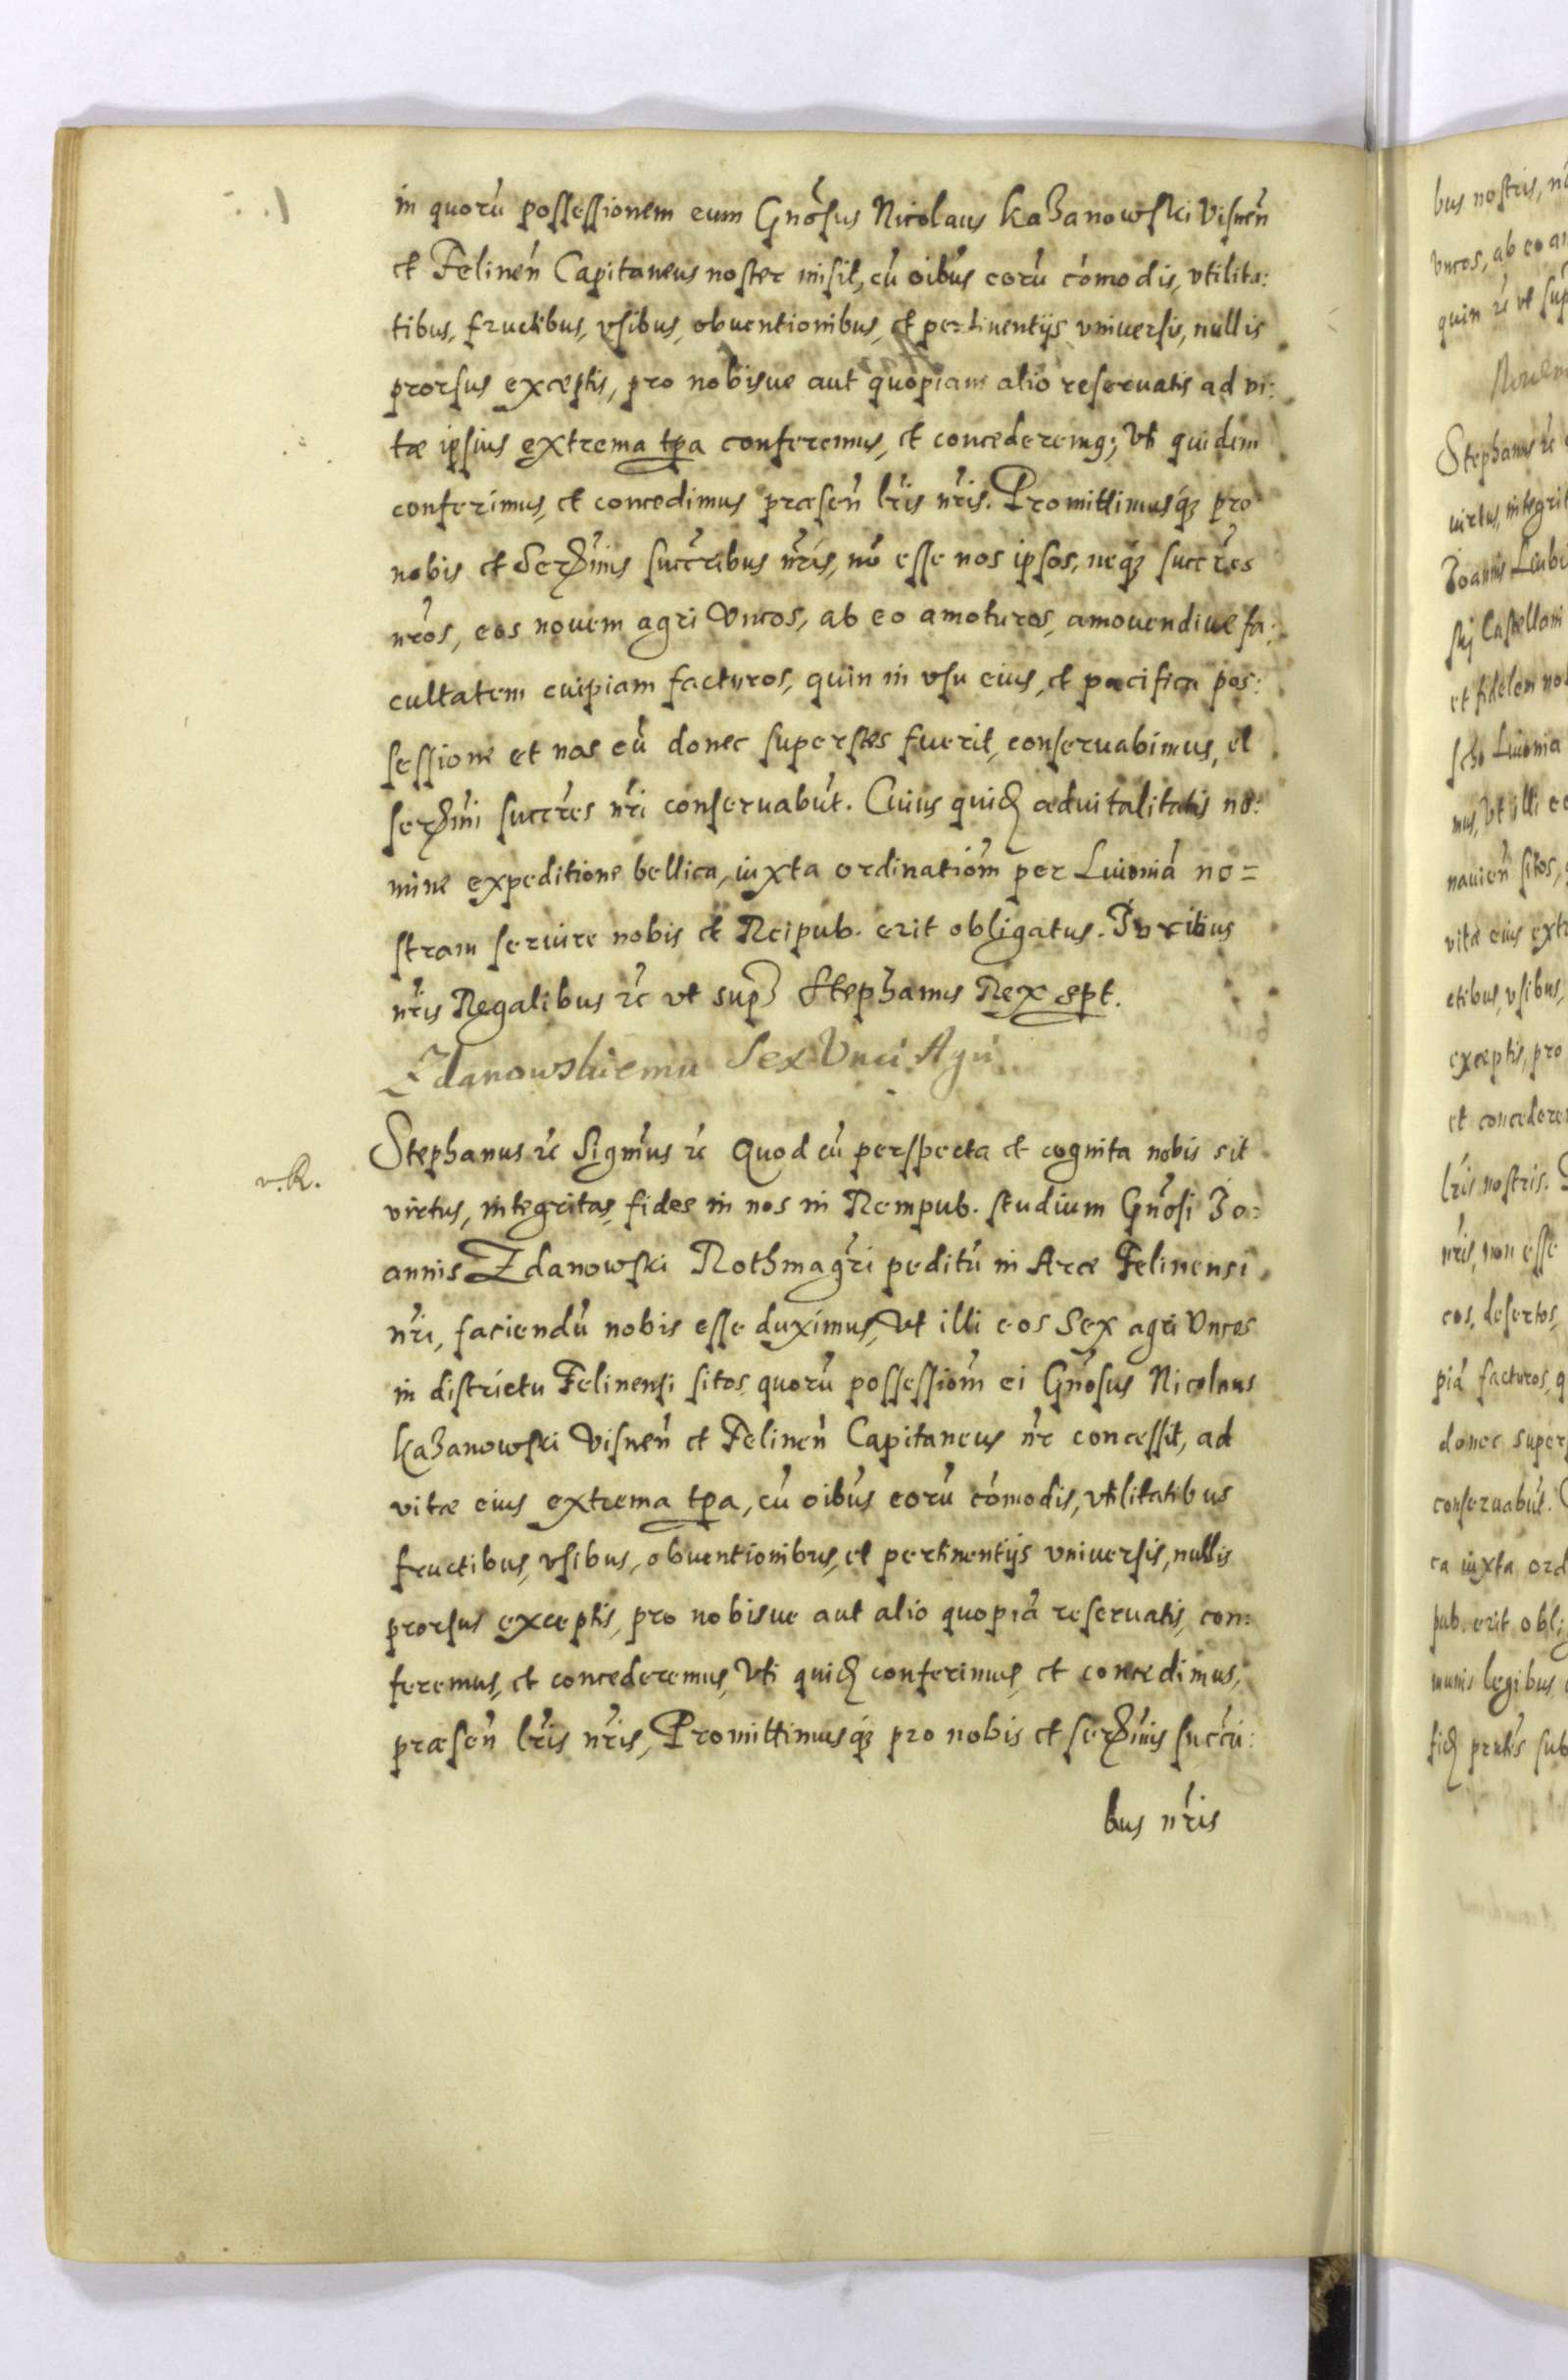 in quorū possessionem eum Gnōsus Nicolaus Kazanowski Visnēn
et Felinēn Capitaneus noster misit, cū oībus eorū cōmodis, vtilita:
tibus, fructibus, vsibus, obuentionibus, et pertinentijs vniuersis, nullis
prorsus exceptis, pro nobisue aut quopiam alio reseruatis ad vi:
tæ ipsius extrema tpa conferemus, et concederemq; Vti quidem
conferimus, et concedimus præsēn lr̄is nr̄is. Promittimusq; pro
nobis et Serx̄mis succr̄ibus nr̄is, nō esse nos ipsos, neq; succr̄es
nr̄os, eos nouem agri Vncos, ab eo amoturos, amouendiue fa:
cultatem cuipiam facturos, quin in vsu eius, et pacifica pos:
sessione et nos eū donec superstes fuerit, conseruabimus, et
serx̄mi succr̄es nr̄i conseruabūt. Cuius quid aduitalitatis no:
mine expeditione bellica, iuxta ordinatiōm per Liuoniā no=
stram seruire nobis et Reipub. erit obligatus. Iuribus
nr̄is Regalibus rc̄ vt sup Stephanus Rex spt.
Zdanowskiemu Sex Vnci Agri
v. R.
Stephanus rc̄ Signm̄us rc̄ Quod cū perspecta et cognita nobis sit
virtus, integritas, fides in nos in Rempub. studium Gnōsi Jo:
annis Zdanowski Rothmagr̄i peditū in Arce Felinensi
nr̄i, faciendū nobis esse duximus, Vt illi eos Sex agri Vncos
in districtu Felinensi sitos quorū possessiōm ei Gnōsus Nicolaus
Kazanowski Visnēn et Felinēn Capitaneus nr̄ concessit, ad
vitæ eius extrema tpa, cū oībus eorū cōmodis, vtilitatibus
fructibus, vsibus, obuentionibus, et pertinentijs vniuersis, nullis
prorsus exceptis, pro nobisue aut alio quopiā reseruatis, con:
feremus, et concederemus, Vti quid conferimus, et concedimus,
præsēn lr̄is nr̄is, Promittimusq; pro nobis et serx̄mis succr̄i:
bus nr̄is
bus nostris,
vncos, ab eo
quin rc̄ vt
Stephanus rc̄
virtus, integrit
Joannis
Castellani
et fidelem
Liuonia
mus, Vt illi
nauiēn sitos,
vitæ eius extr
ctibus, vsibus,
exceptis, pro
et concedere
lr̄is nostris.
nr̄is, non esse
cos, desertos,
piā facturos,
donec super
conseruabūt.
ca iuxta ord
pub. erit obli
munis legibus